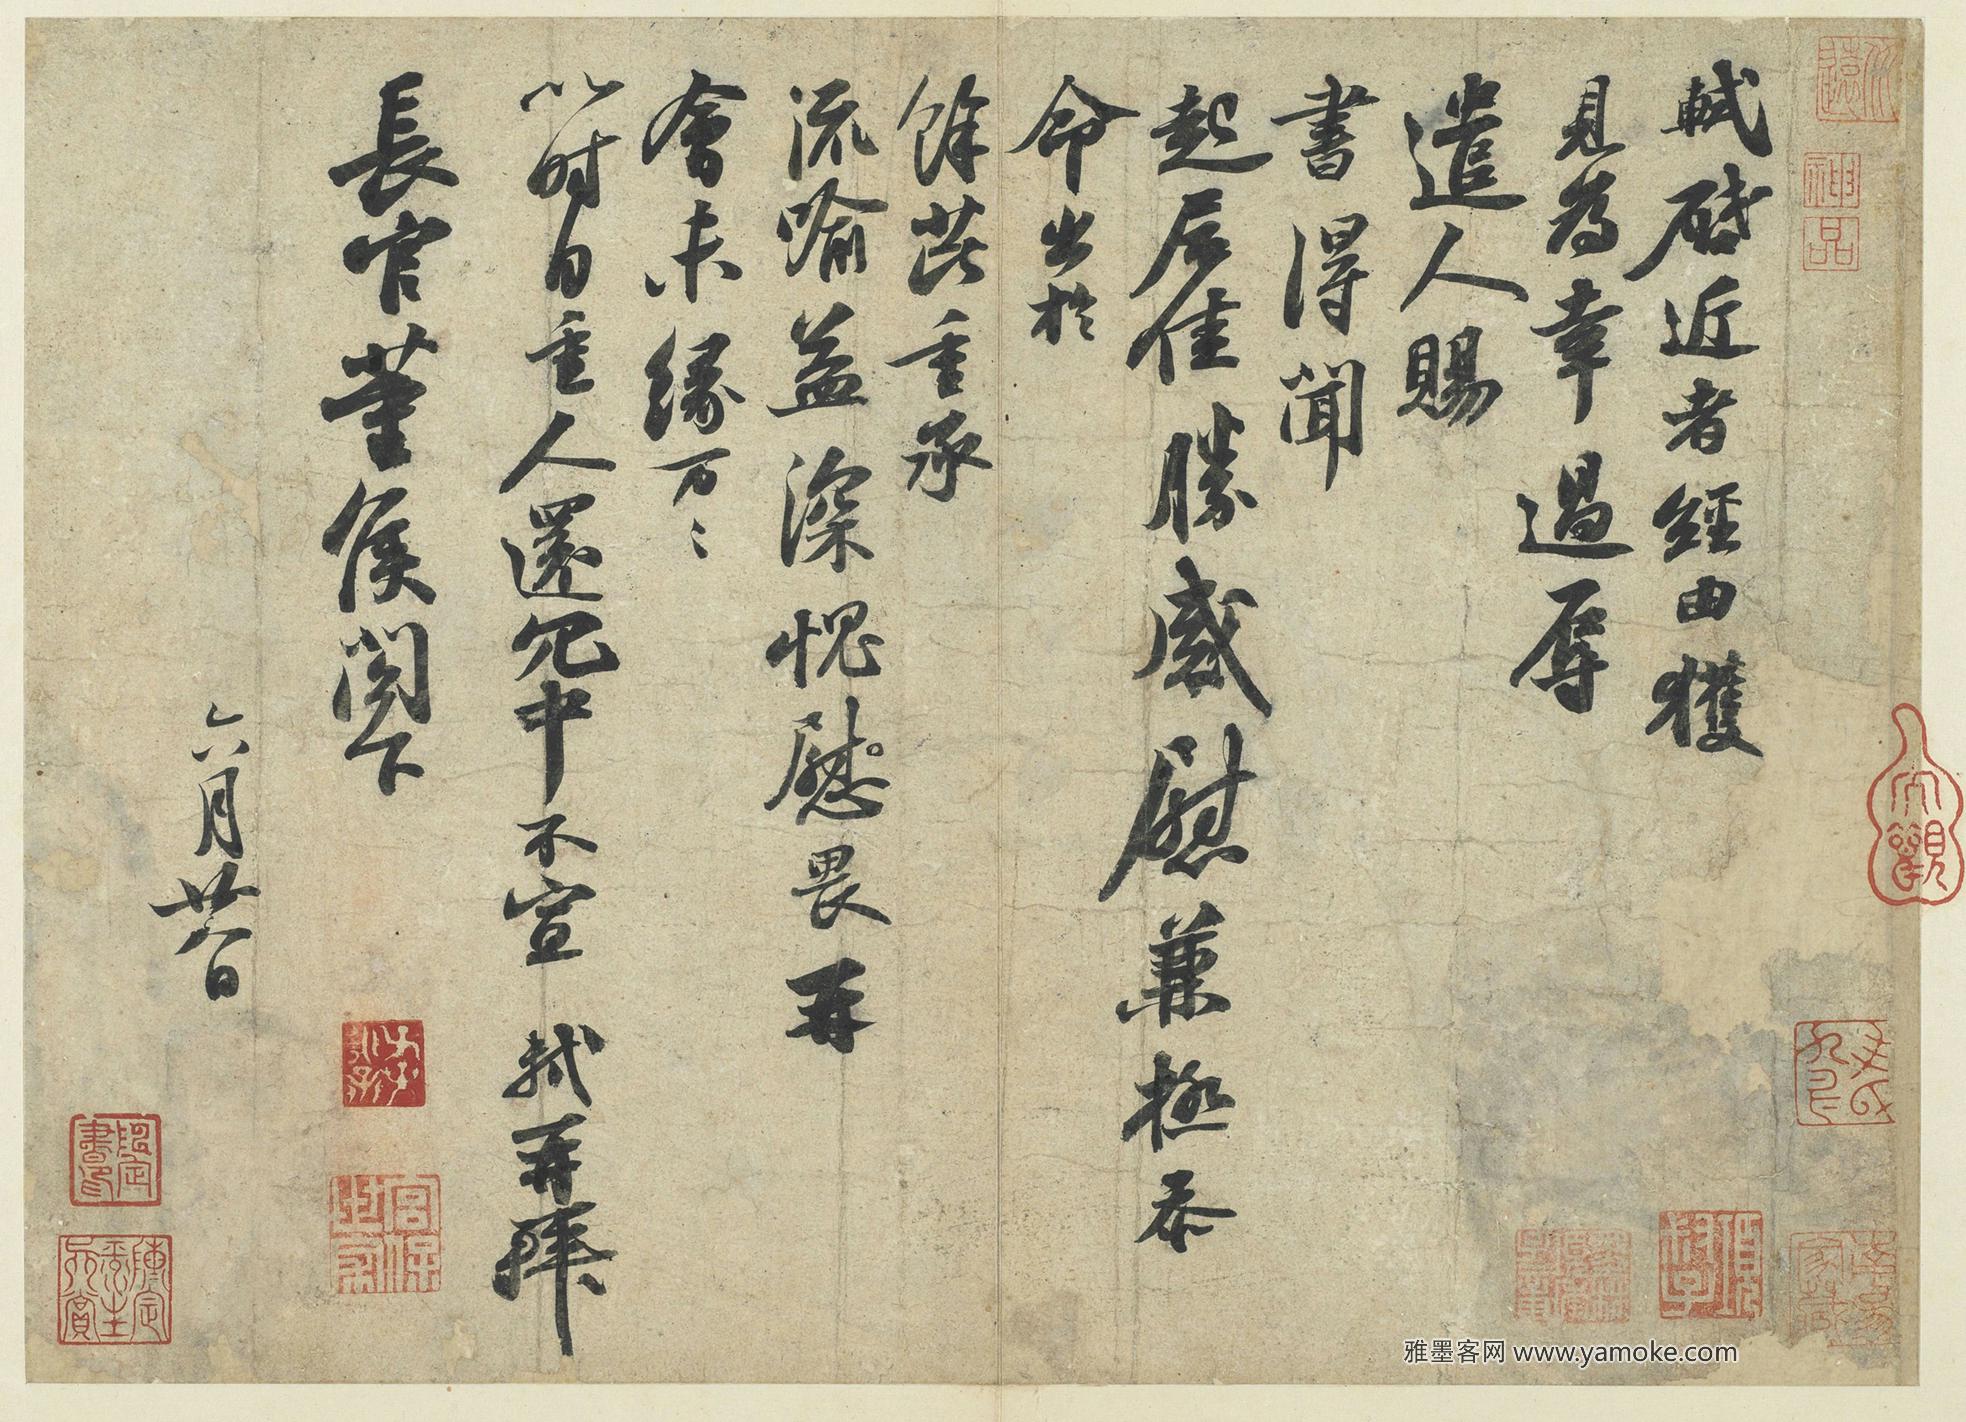 軾啓近者經由獲
見為幸過辱
遣人賜
書得聞
起居佳勝感慰兼極忝
命出於
餘芘重承
流喻益深愧慰畏再
會未緣万〻
以時自重人還冗中不宣 軾再拜
長官董侯閤下
六月廿八日
神品
大觀
雅墨客网 www.yamoke.com